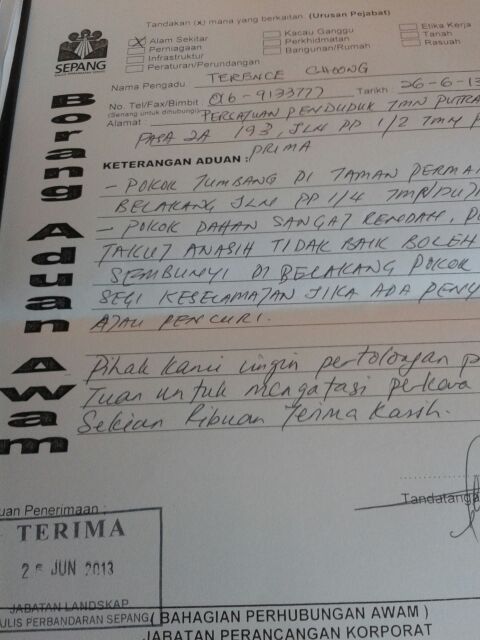 Tandakan (x) mana yang berkaitan. (Urusan Pejabat)
x Alam Sekitar
Perniagaan
Infrastruktur
Peraturan/Perundangan
Kacau Ganggu
Perkhidmatan
Bangunan/Rumah
Etika Kerja
Tanah
Rasuah
SEPANG
Nama Pengadu : TERENCE CHOONG
No. Tel/Fax/Bimbit : 016-9133777 Tarikh : 26-6-13
(Senang untuk dihubungi)
Alamat : PERSATUAN PENDUDUK TMN PUTRA
FASA 2A 193, JLN PP 1/2 TMN P
PRIMA
Borang Aduan Awam
KETERANGAN ADUAN :
- POKOK TUMBANG DI TAMAN PERMAI
BELAKANG JLN PP 1/4
- POKOK DAHAN SANGAT RENDAH,
TAKUT TIDAK BAIK BOLEH
SEMBUNYI DI BELAKANG POKOK
SEGI KESELAMATAN JIKA ADA PENY
ATAU PENCURI.
Pihak kami ingin pertolongan p
Tuan untuk mengatasi perkara
Sekian Ribuan Terima Kasih.
Tandatanga
uan Penerimaan :
TERIMA
26 JUN 2013
JABATAN LANDSKAP
ULIS PERBANDARAN SEPANG
( BAHAGIAN PERHUBUNGAN AWAM )
JABATAN PERANCANGAN KORPORAT